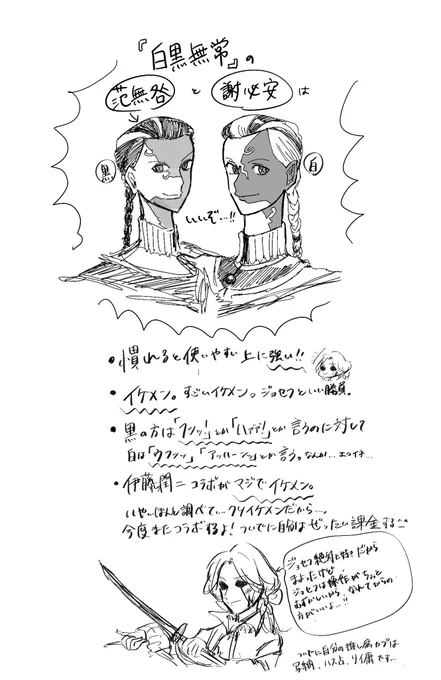 『白黒無常』の
范無咎 と 謝必安 は
黒
白
いいぞ…!!
・慣れると使いやすい上に強い!!
・イケメン。すごいイケメン。ジョセフといい勝負。
・黒の方は「フンッ!」とか「ハァァ!」とか言うのに対して
白は「ウフンッ」「アッハーン」とか言う。なんか…エロイネ…
・伊藤潤二コラボがマジでイケメン。
いやほんと調べて…クソイケメンだから…。
今度またコラボするよ!ついでに自分はぜったい課金する
ジョセフ絶対に好きだから
まよったけど
ジョセフは操作がちょっと
むずかしいから、なんてからの
方がいいよ…!!
ついでに自分の推し属カプは
写納、ハス占、リイ傭です…